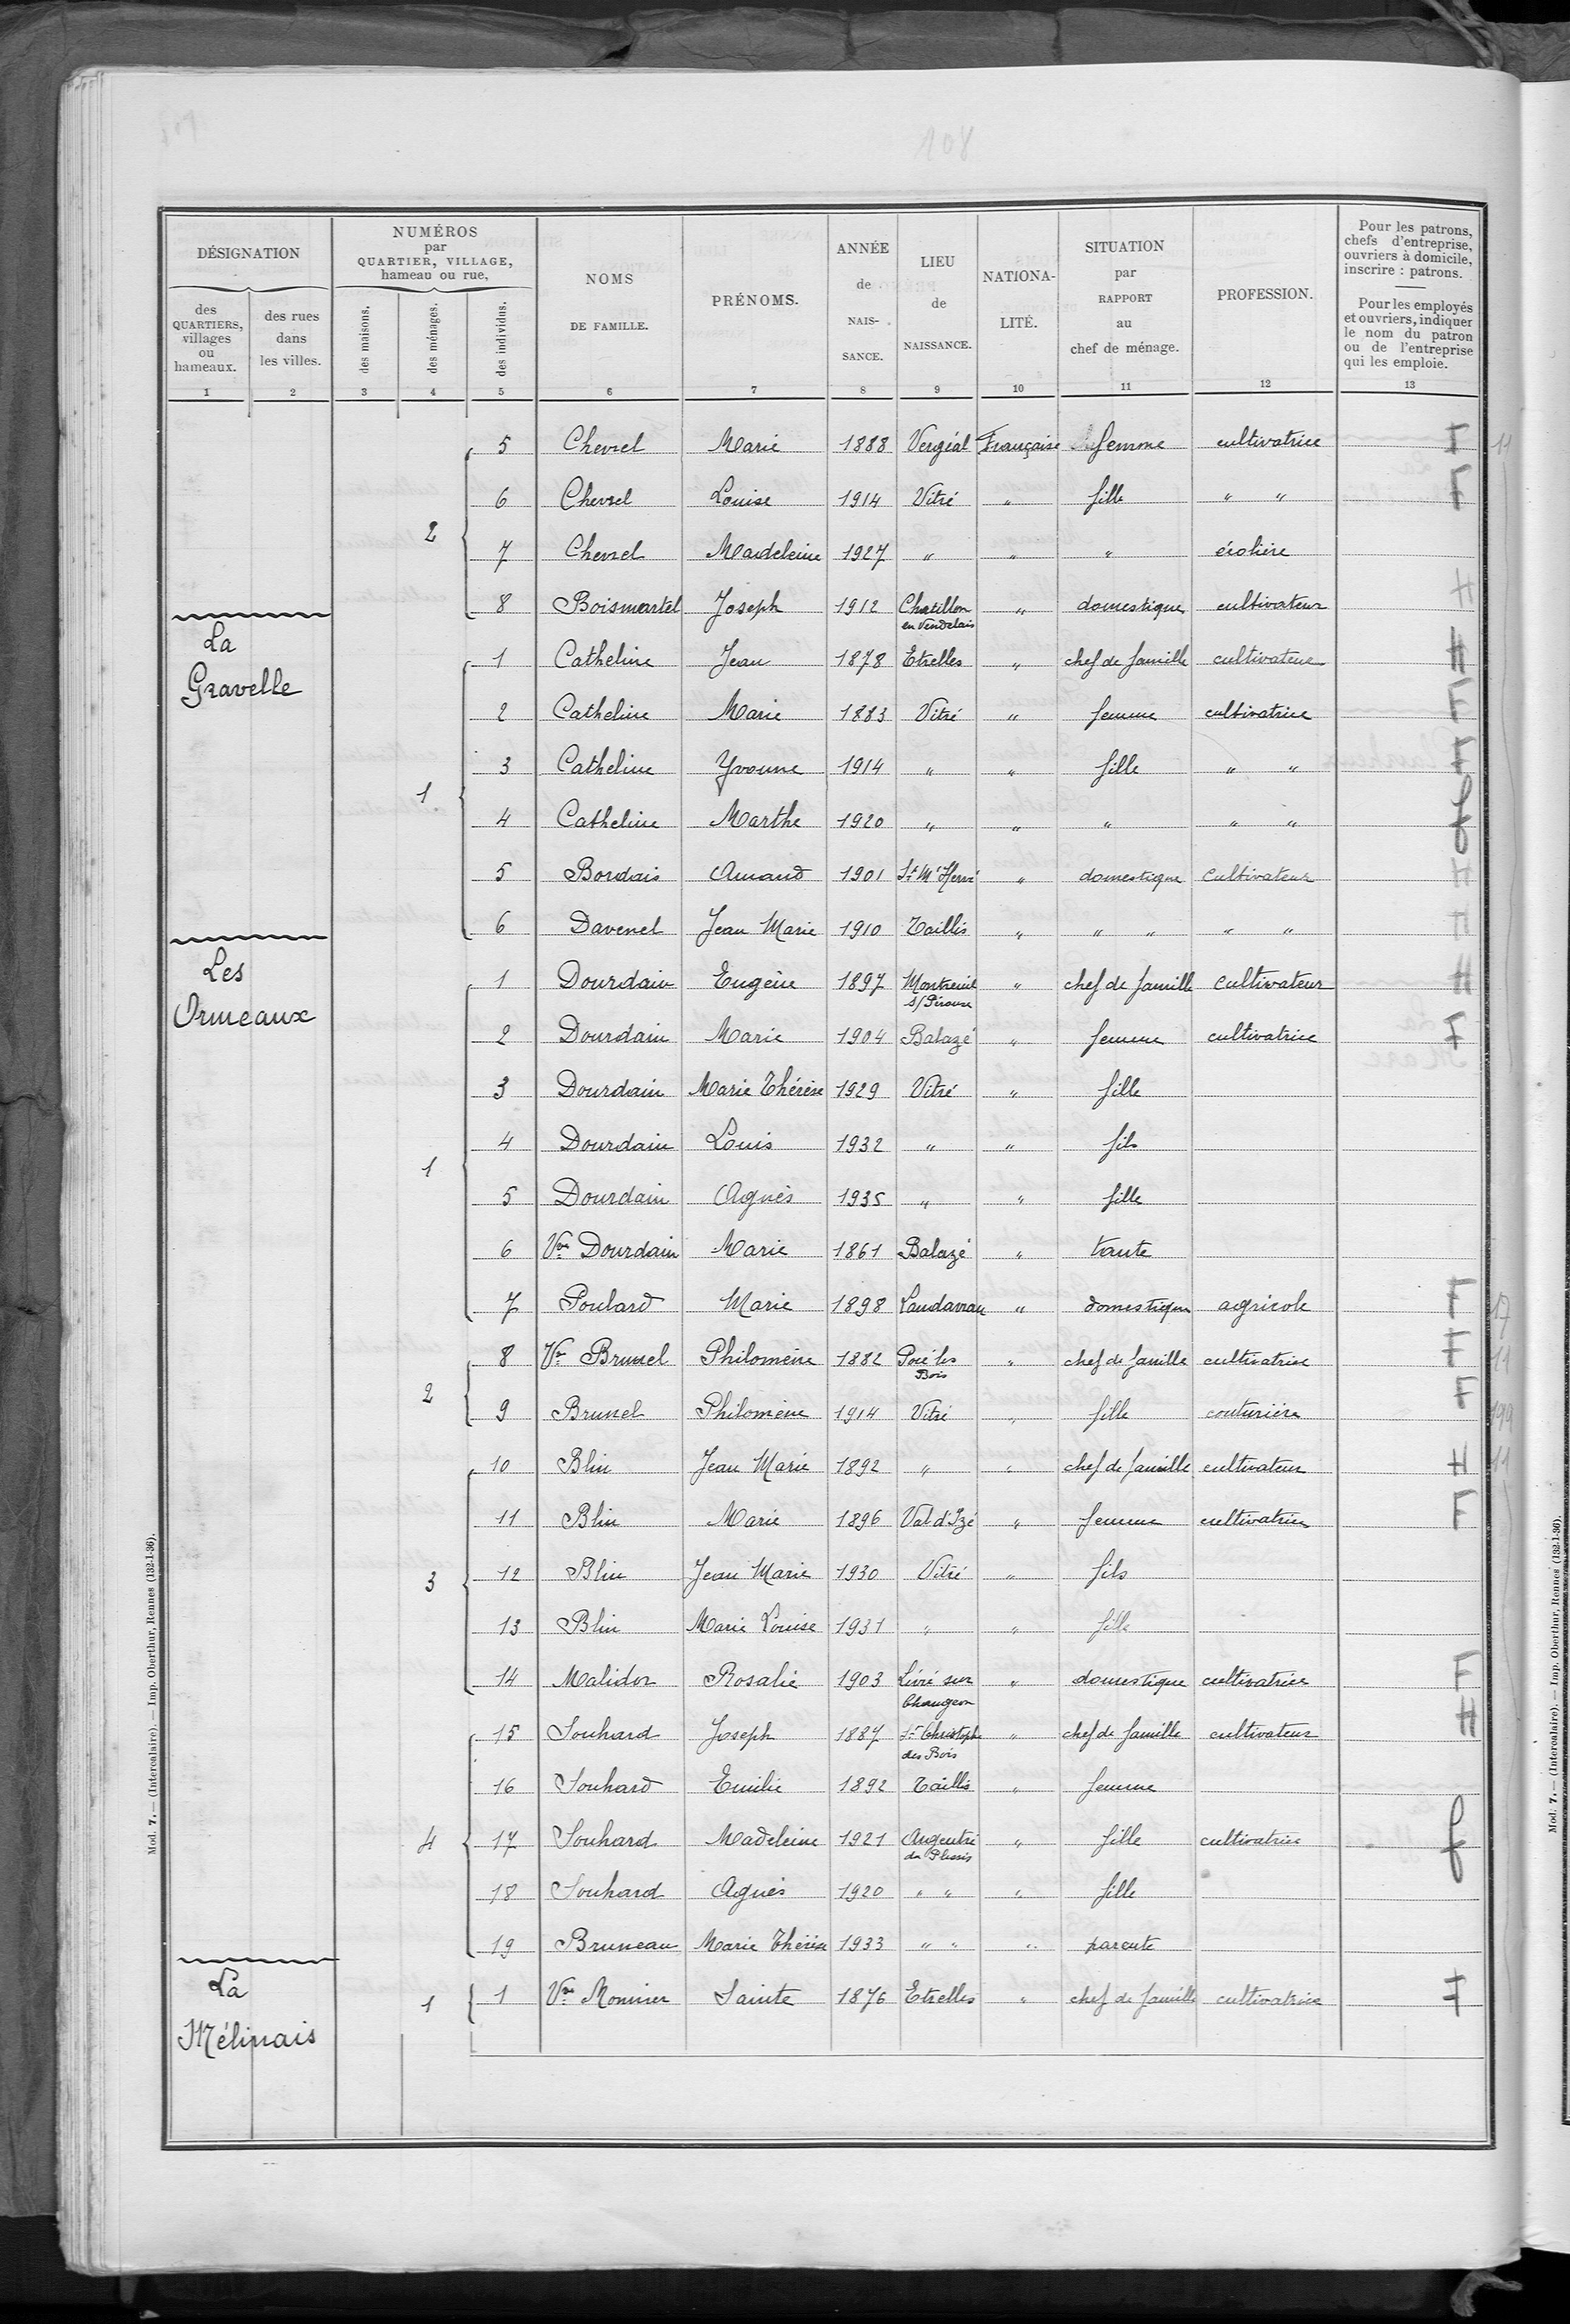 108
DÉSIGNATION
des QUARTIERS, villages ou hameaux.
des rues dans les villes.
NUMÉROS par QUARTIER, VILLAGE, hameau ou rue.
des maisons.
des ménages.
des individus.
NOMS DE FAMILLE.
PRÉNOMS.
ANNÉE de NAIS- SANCE.
LIEU de NAISSANCE.
NATIONA- LITÉ.
SITUATION par RAPPORT au chef de ménage.
PROFESSION.
Pour les patrons, chefs d'entreprise, ouvriers à domicile, inscrire : patrons.
Pour les employés et ouvriers, indiquer le nom du patron ou de l'entreprise qui les emploie.
1 2 3 4 5 6 7 8 9 10 11 12 13
5 Chevrel Marie 1888 Vergéal Française femme cultivatrice F 11
6 Chevrel Louise 1914 Vitré " fille " " F
2
7 Chevrel Madeleine 1927 " " " écolière
8 Boismartel Joseph 1912 Chatillon en Vendelais " domestique cultivateur H
La Gravelle
1 Catheline Jean 1878 Etrelles " chef de famille cultivateur H
2 Catheline Marie 1883 Vitré " femme cultivatrice F
3 Catheline Yvonne 1914 " " fille " " F
1
4 Catheline Marthe 1920 " " " " " f
5 Bordais Amand 1901 St M' Hervé " domestique cultivateur H
6 Davenel Jean Marie 1910 Taillis " " " " " H
Les Ormeaux
1 Dourdain Eugène 1897 Montreuil s/ Pérouse " chef de famille cultivateur H
2 Dourdain Marie 1904 Balazé " femme cultivatrice F
3 Dourdain Marie Thérèse 1929 Vitré " fille
4 Dourdain Louis 1932 " " fils
1
5 Dourdain Agnès 1935 " " fille
6 Vve Dourdain Marie 1861 Balazé " tante
7 Poulard Marie 1898 Landavran " domestique agricole F 17
8 Vve Brunel Philomène 1882 Pocé les Bois " chef de famille cultivatrice F 11
2
9 Brunel Philomène 1914 Vitré " fille couturière F 199
10 Blin Jean Marie 1892 " " chef de famille cultivateur H 11
11 Blin Marie 1896 Val d'Izé " femme cultivatrice F
12 Blin Jean Marie 1930 Vitré " fils
3
13 Blin Marie Louise 1931 " " fille
14 Malidor Rosalie 1903 Livré sur Changeon " domestique cultivatrice F
15 Souhard Joseph 1887 St Christophe des Bois " chef de famille cultivateur H
16 Souhard Emilie 1892 Taillis " femme
4
17 Souhard Madeleine 1921 Argentré du Plessis " fille cultivatrice f
18 Souhard Agnès 1920 " " " fille
19 Bruneau Marie Thérèse 1933 " " " parente
La Mélinais
1 1 Vve Monnier Sainte 1876 Etrelles " chef de famille cultivatrice F
Mod. 7. — (Intercalaire). — Imp. Oberthur, Rennes (132-1-36).
Mod. 7. — (Intercalaire). — Imp. Oberthur, Rennes (132-1-36).